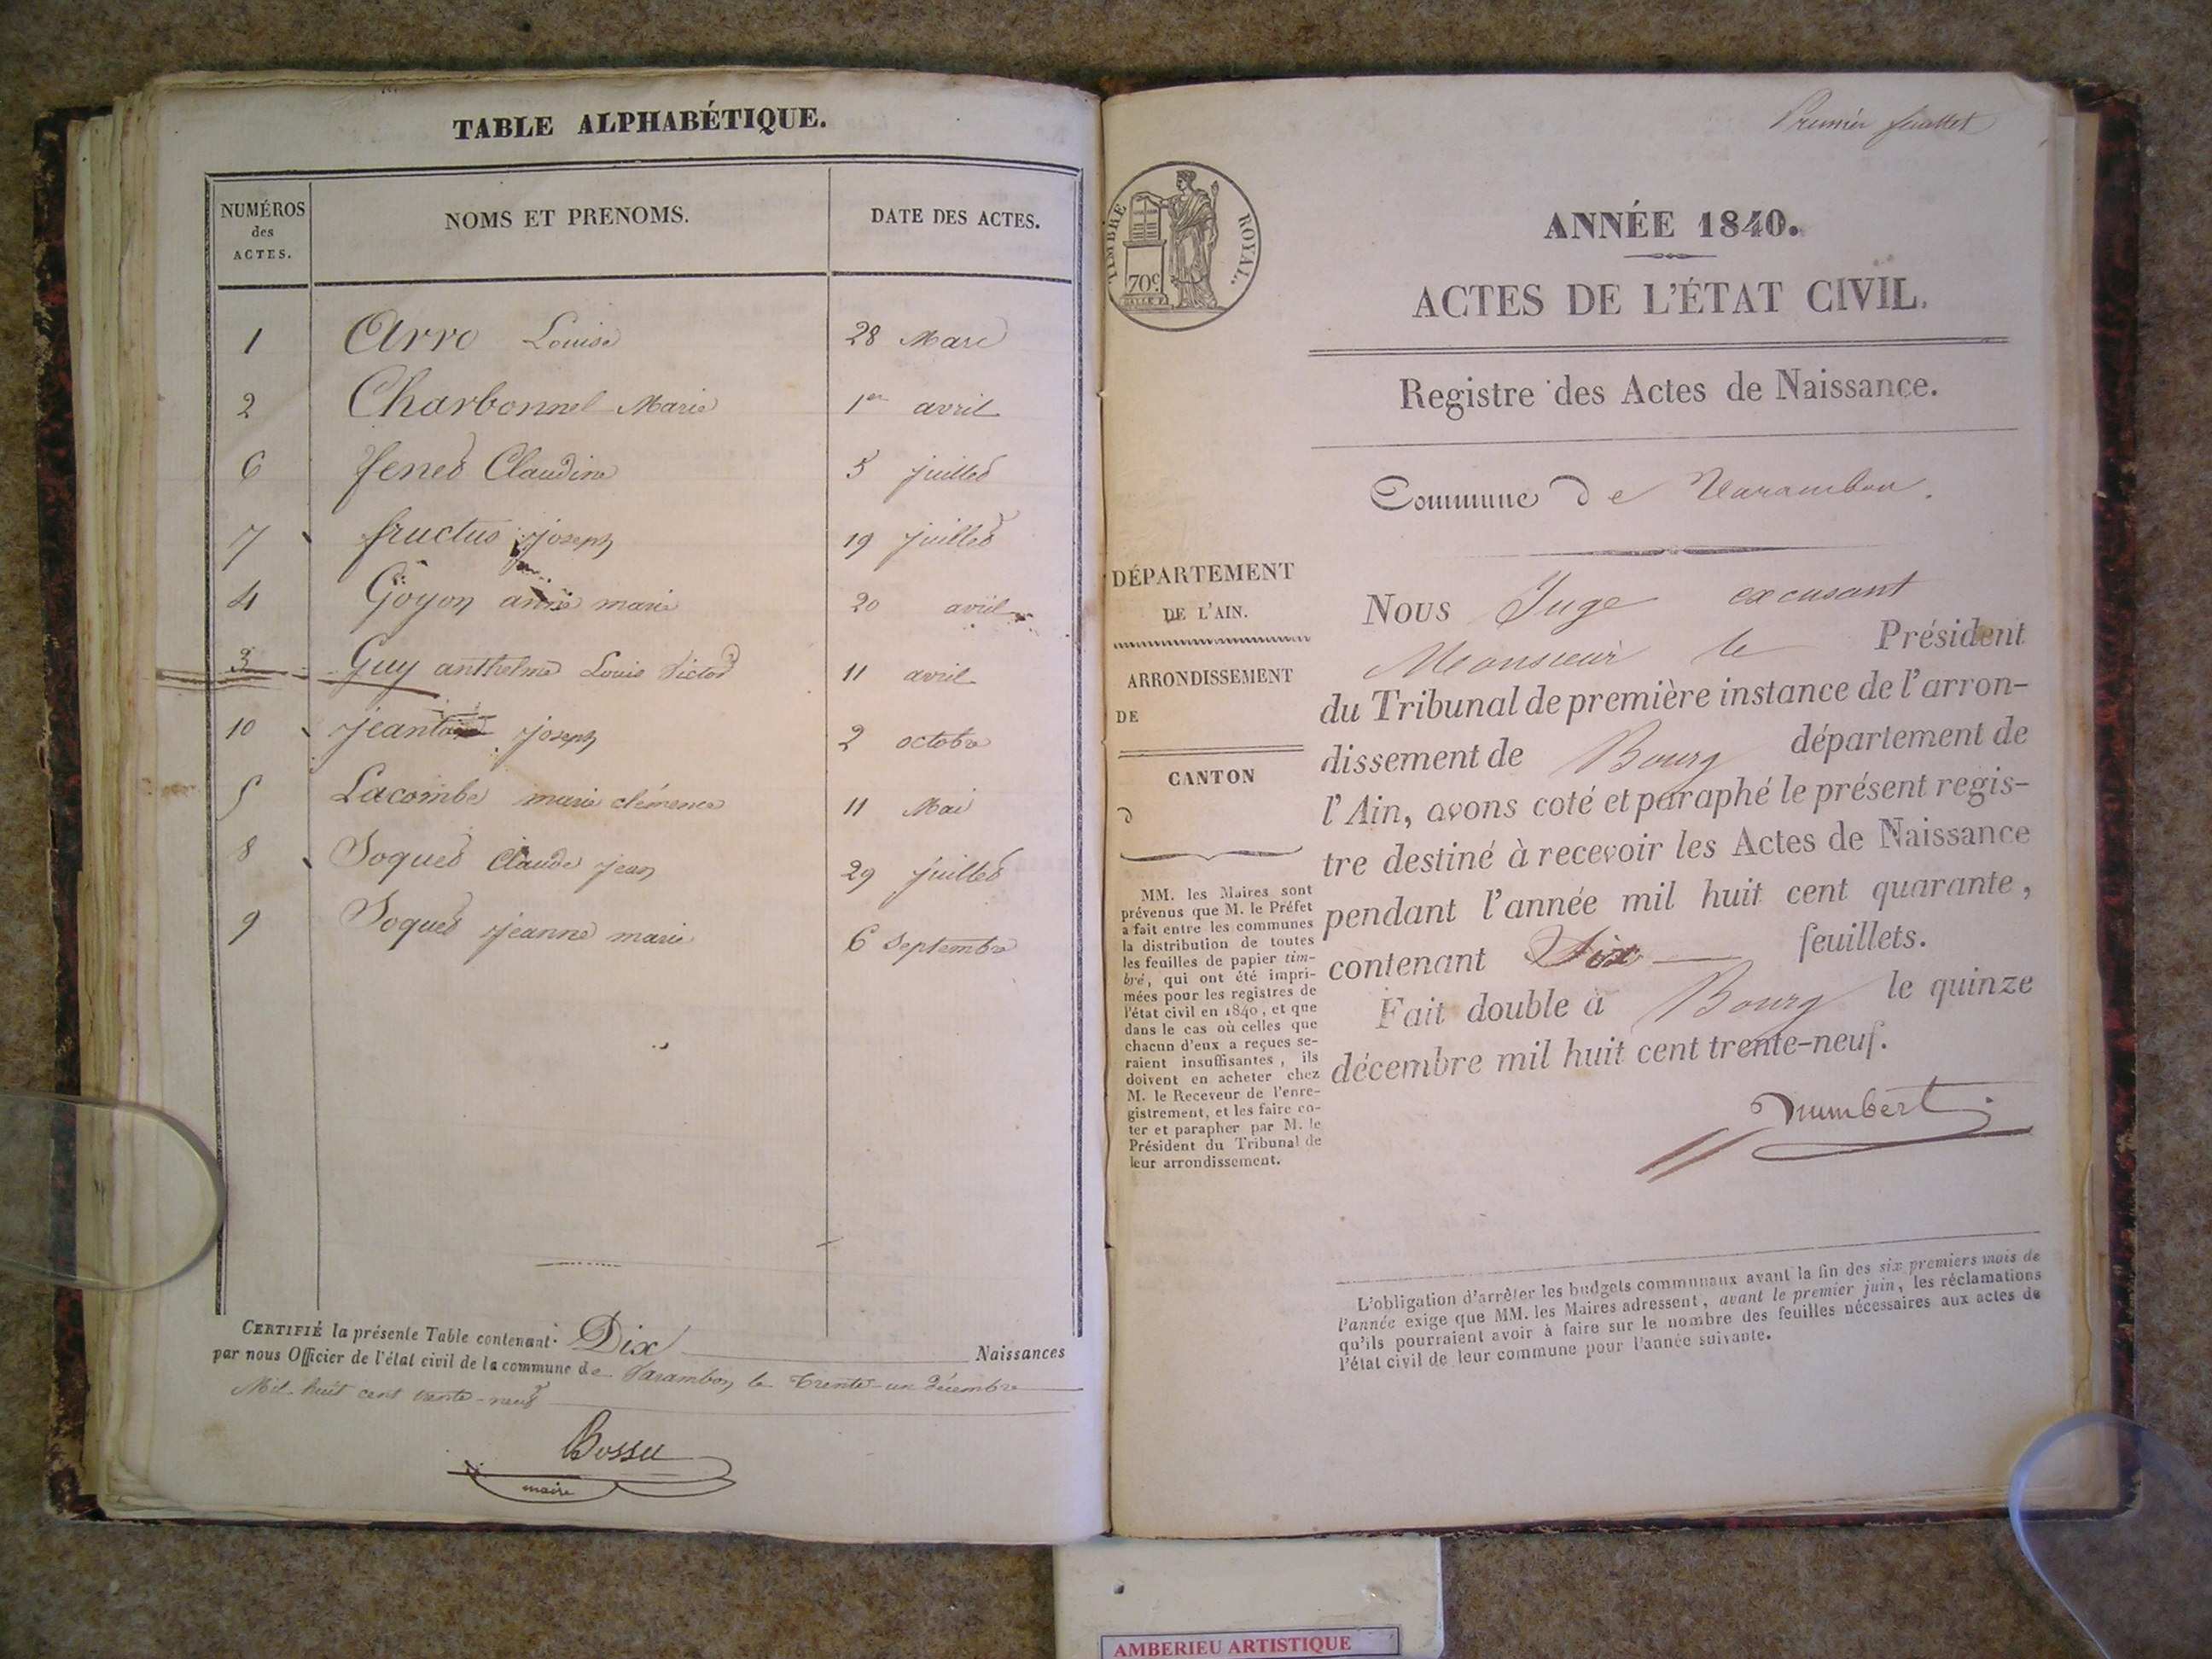 TABLE ALPHABÉTIQUE.
NUMÉROS des ACTES. NOMS ET PRENOMS. DATE DES ACTES.
1 Arro Louise 28 Mars
2 Charbonnel Marie 1er avril
6 fenet Claudine 5 juillet
7 fructus joseph 19 juillet
4 Goyon anne marie 20 avril
3 Guy anthelme Louis Victor 11 avril
10 joseph 2 octobre
5 Lacombe marie clémence 11 Mai
8 Soquet Claude jean 29 juillet
9 Soquet jeanne marie 6 Septembre
CERTIFIÉ la présente Table contenant Dix Naissances
par nous Officier de l'état civil de la commune de Varambon, le trente-un décembre
Mil huit cent trente-neuf
Bossu
maire
Premier feuillet
TIMBRE ROYAL.
70c
ANNÉE 1840.
ACTES DE L'ÉTAT CIVIL.
Registre des Actes de Naissance.
Commune de Varambon.
DÉPARTEMENT
DE L'AIN.
ARRONDISSEMENT
DE
CANTON
d
MM. les Maires sont
prévenus que M. le Préfet
a fait entre les communes
la distribution de toutes
les feuilles de papier tim-
bré, qui ont été impri-
mées pour les registres de
l'état civil en 1840, et que
dans le cas où celles que
chacun d'eux a reçues se-
raient insuffisantes, ils
doivent en acheter chez
M. le Receveur de l'enre-
gistrement, et les faire co-
ter et parapher par M. le
Président du Tribunal de
leur arrondissement.
Nous Juge excusant
Monsieur le Président
du Tribunal de première instance de l'arron-
dissement de Bourg département de
l'Ain, avons coté et paraphé le présent regis-
tre destiné à recevoir les Actes de Naissance
pendant l'année mil huit cent quarante,
contenant Six feuillets.
Fait double à Bourg le quinze
décembre mil huit cent trente-neuf.
L'obligation d'arrêter les budgets communaux avant la fin des six premiers mois de
l'année exige que MM. les Maires adressent, avant le premier juin, les réclamations
qu'ils pourraient avoir à faire sur le nombre des feuilles nécessaires aux actes de
l'état civil de leur commune pour l'année suivante.
AMBERIEU ARTISTIQUE